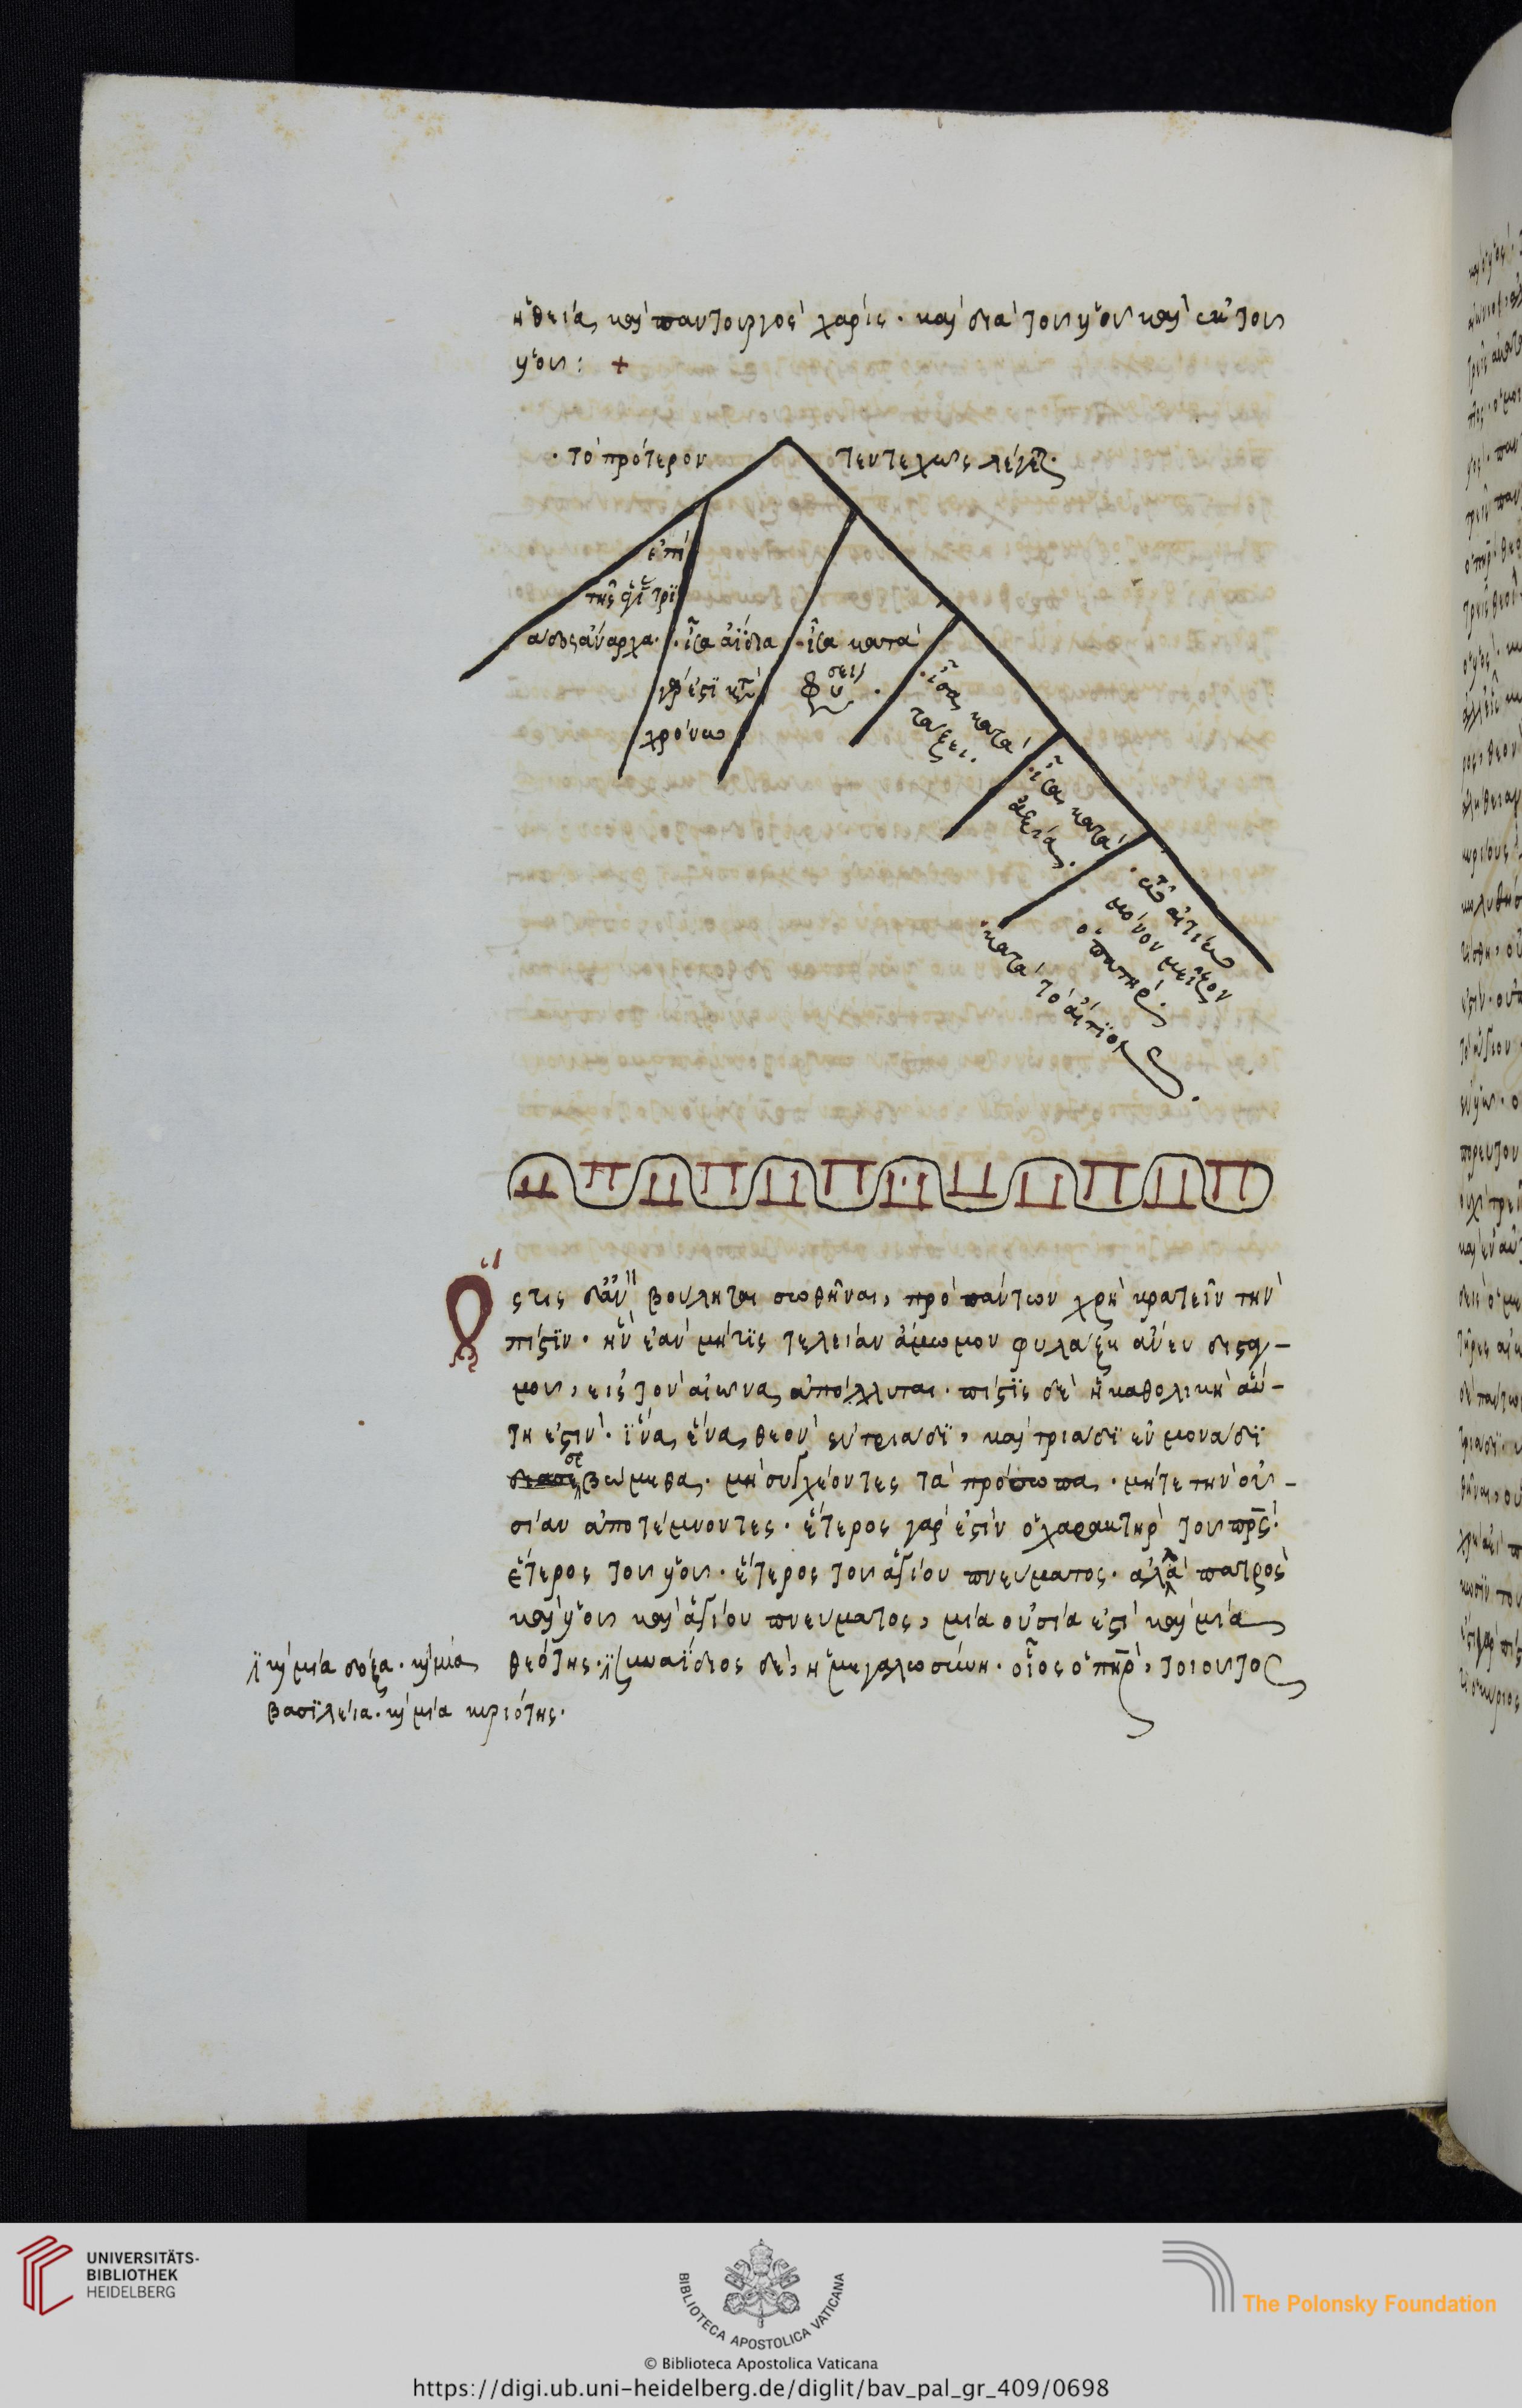 ἡ θεία καὶ παντουργὸς χάρις · καὶ διὰ τοῦ υἱοῦ καὶ ἐκ τοῦ
υἱοῦ : +
· τὸ πρότερον πενταχῶς λέγεται ·
ἐπὶ
τῆς ἁγί τρι
άδος ἄναρχα ·
· ἶσα ἀΐδια
γάρ ἐστι
χρόνω
· ἶσα κατὰ
φύσιν ·
· ἶσα κατὰ
τάξει ·
· ἶσα κατὰ
ἀξία ·
· τῶ αἰτίω
μόνον μεῖζον
ὁ πατήρ ·
· κατὰ τὸ αἴτιον ·
Ὅ
στις δἂν βούληται σωθῆναι, πρὸ πάντων χρὴ κρατεῖν τὴν
πίστϊν · ἣν ἐὰν μή τϊς τελείαν ἄμωμον φυλάξη ἄνευ δισταγ-
μοῦ, εἰς τὸν αἰῶνα ἀπόλλυται · πίστϊς δὲ ἡ καθολικὴ αὕ-
τη ἐστιν · ἵνα ἕνα θεὸν ἐν τριάδϊ, καὶ τριάδα ἐν μονάδϊ
σεβώμεθα · μὴ συγχέοντες τὰ πρόσωπα · μήτε τὴν οὐ-
σίαν ἀποτέμνοντες · ἕτερος γάρ ἐστὶν ὁ χαρακτὴρ τοῦ πρς ·
ἕτερος τοῦ υἱοῦ · ἕτερος τοῦ ἁγίου πνεύματος · ἀλλὰ πατρὸς
καὶ υἱοῦ καὶ ἁγίου πνεύματος, μία οὐσία ἐστὶ καὶ μία
θεότης · συναΐδιος δὲ, ἡ μεγαλωσύνη · οἷος ὁ πηρ, τοιοῦτος
κὴ μία δόξα · κὴ μία
βασϊλεία · κὴ μία κυριότης ·
UNIVERSITÄTS-
BIBLIOTHEK
HEIDELBERG
BIBLIOTECA APOSTOLICA VATICANA
The Polonsky Foundation
© Biblioteca Apostolica Vaticana
https://digi.ub.uni-heidelberg.de/diglit/bav_pal_gr_409/0698